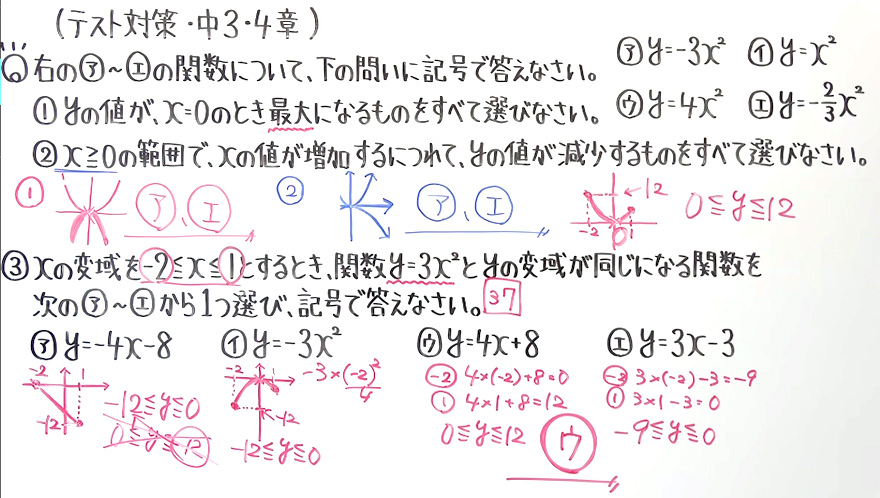 (テスト対策・中3・4章)
⑥右の㋐~㋓の関数について、下の問いに記号で答えなさい。
㋐y=-3x² ㋑y=x²
㋒y=4x² ㋓y=-2/3x²
①yの値が、x=0のとき最大になるものをすべて選びなさい。
②x≧0の範囲で、xの値が増加するにつれて、yの値が減少するものをすべて選びなさい。
① ㋐、㋓
② ㋐、㋓
12
-2 1
0
0≦y≦12
③xの変域を-2≦x≦1とするとき、関数y=3x²とyの変域が同じになる関数を
次の㋐~㋓から1つ選び、記号で答えなさい。37
㋐y=-4x-8 ㋑y=-3x² ㋒y=4x+8 ㋓y=3x-3
-2 1
-12
-12≦y≦0
0≦y≦12
-2 1
-3×(-2)²
4
-12
-12≦y≦0
-2 4×(-2)+8=0
① 4×1+8=12
0≦y≦12 ウ
-2 3×(-2)-3=-9
① 3×1-3=0
-9≦y≦0